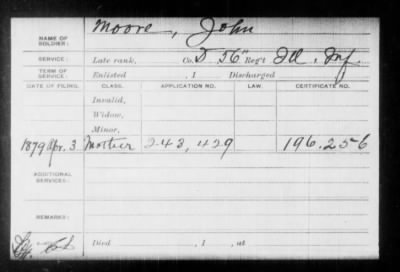 NAME OF SOLDIER: Moore, John
SERVICE: Late rank, Co. D 56" Reg't Ill. Inf.
TERM OF SERVICE: Enlisted , 1 Discharged
DATE OF FILING. CLASS. APPLICATION NO. LAW. CERTIFICATE NO.
Invalid,
Widow,
Minor,
1879 Apr. 3 Mother 243,429 196.256
ADDITIONAL SERVICES:
REMARKS:
Died , 1 , at